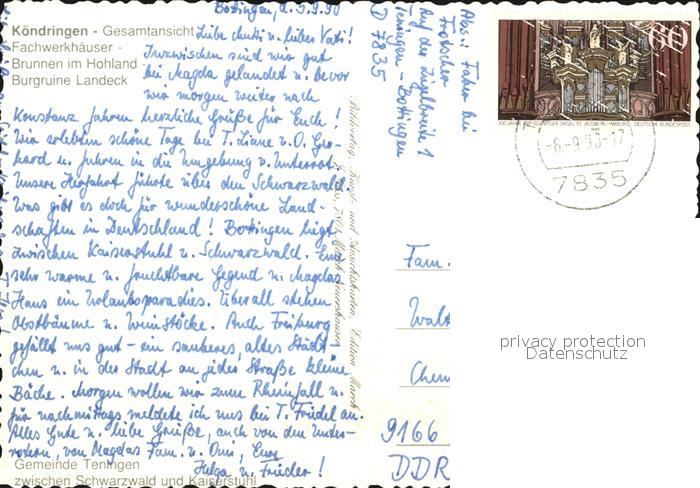 Bottingen, d. 5.9.90
Köndringen - Gesamtansicht
Fachwerkhäuser -
Brunnen im Hohland
Burgruine Landeck
Liebe Mutti u. lieber Vati!
Inzwischen sind wir gut
bei Magda gelandet u. bevor
wir morgen weiter nach
Konstanz fahren herzliche Grüße für Euch!
Wir erlebten schöne Tage bei T. Liane u. O. Ger-
hard u. fuhren in die Umgebung v. Unterrot.
Unsere Herfahrt führte über den Schwarzwald.
Was gibt es doch für wunderschöne Land-
schaften in Deutschland! Bottingen liegt
zwischen Kaiserstuhl u. Schwarzwald. Eine
sehr warme u. fruchtbare Gegend u. Magdas
Haus ein Urlaubsparadies. Überall stehen
Obstbäume u. Weinstöcke. Auch Freiburg
gefällt uns gut - ein sauberes, altes Städt-
chen u. in der Stadt an jeder Straße kleine
Bäche. Morgen wollen wir zum Rheinfall u.
für nachmittags meldete ich uns bei T. Friedel an.
Alles Gute u. liebe Grüße, auch von den Unter-
rotern, von Magdas Fam. u. Omi, Eure
Helga u. Frieder!
Gemeinde Teningen
zwischen Schwarzwald und Kaiserstuhl
Abs.: Faber bei
Trotscher
Auf der Ziegelbreite 1
Teningen - Bottingen
D 7835
60
DEUTSCHE BUNDESPOST
-6.-9.90-17
7835
Fam.
Walt
Chem
9166
DDR
privacy protection
Datenschutz